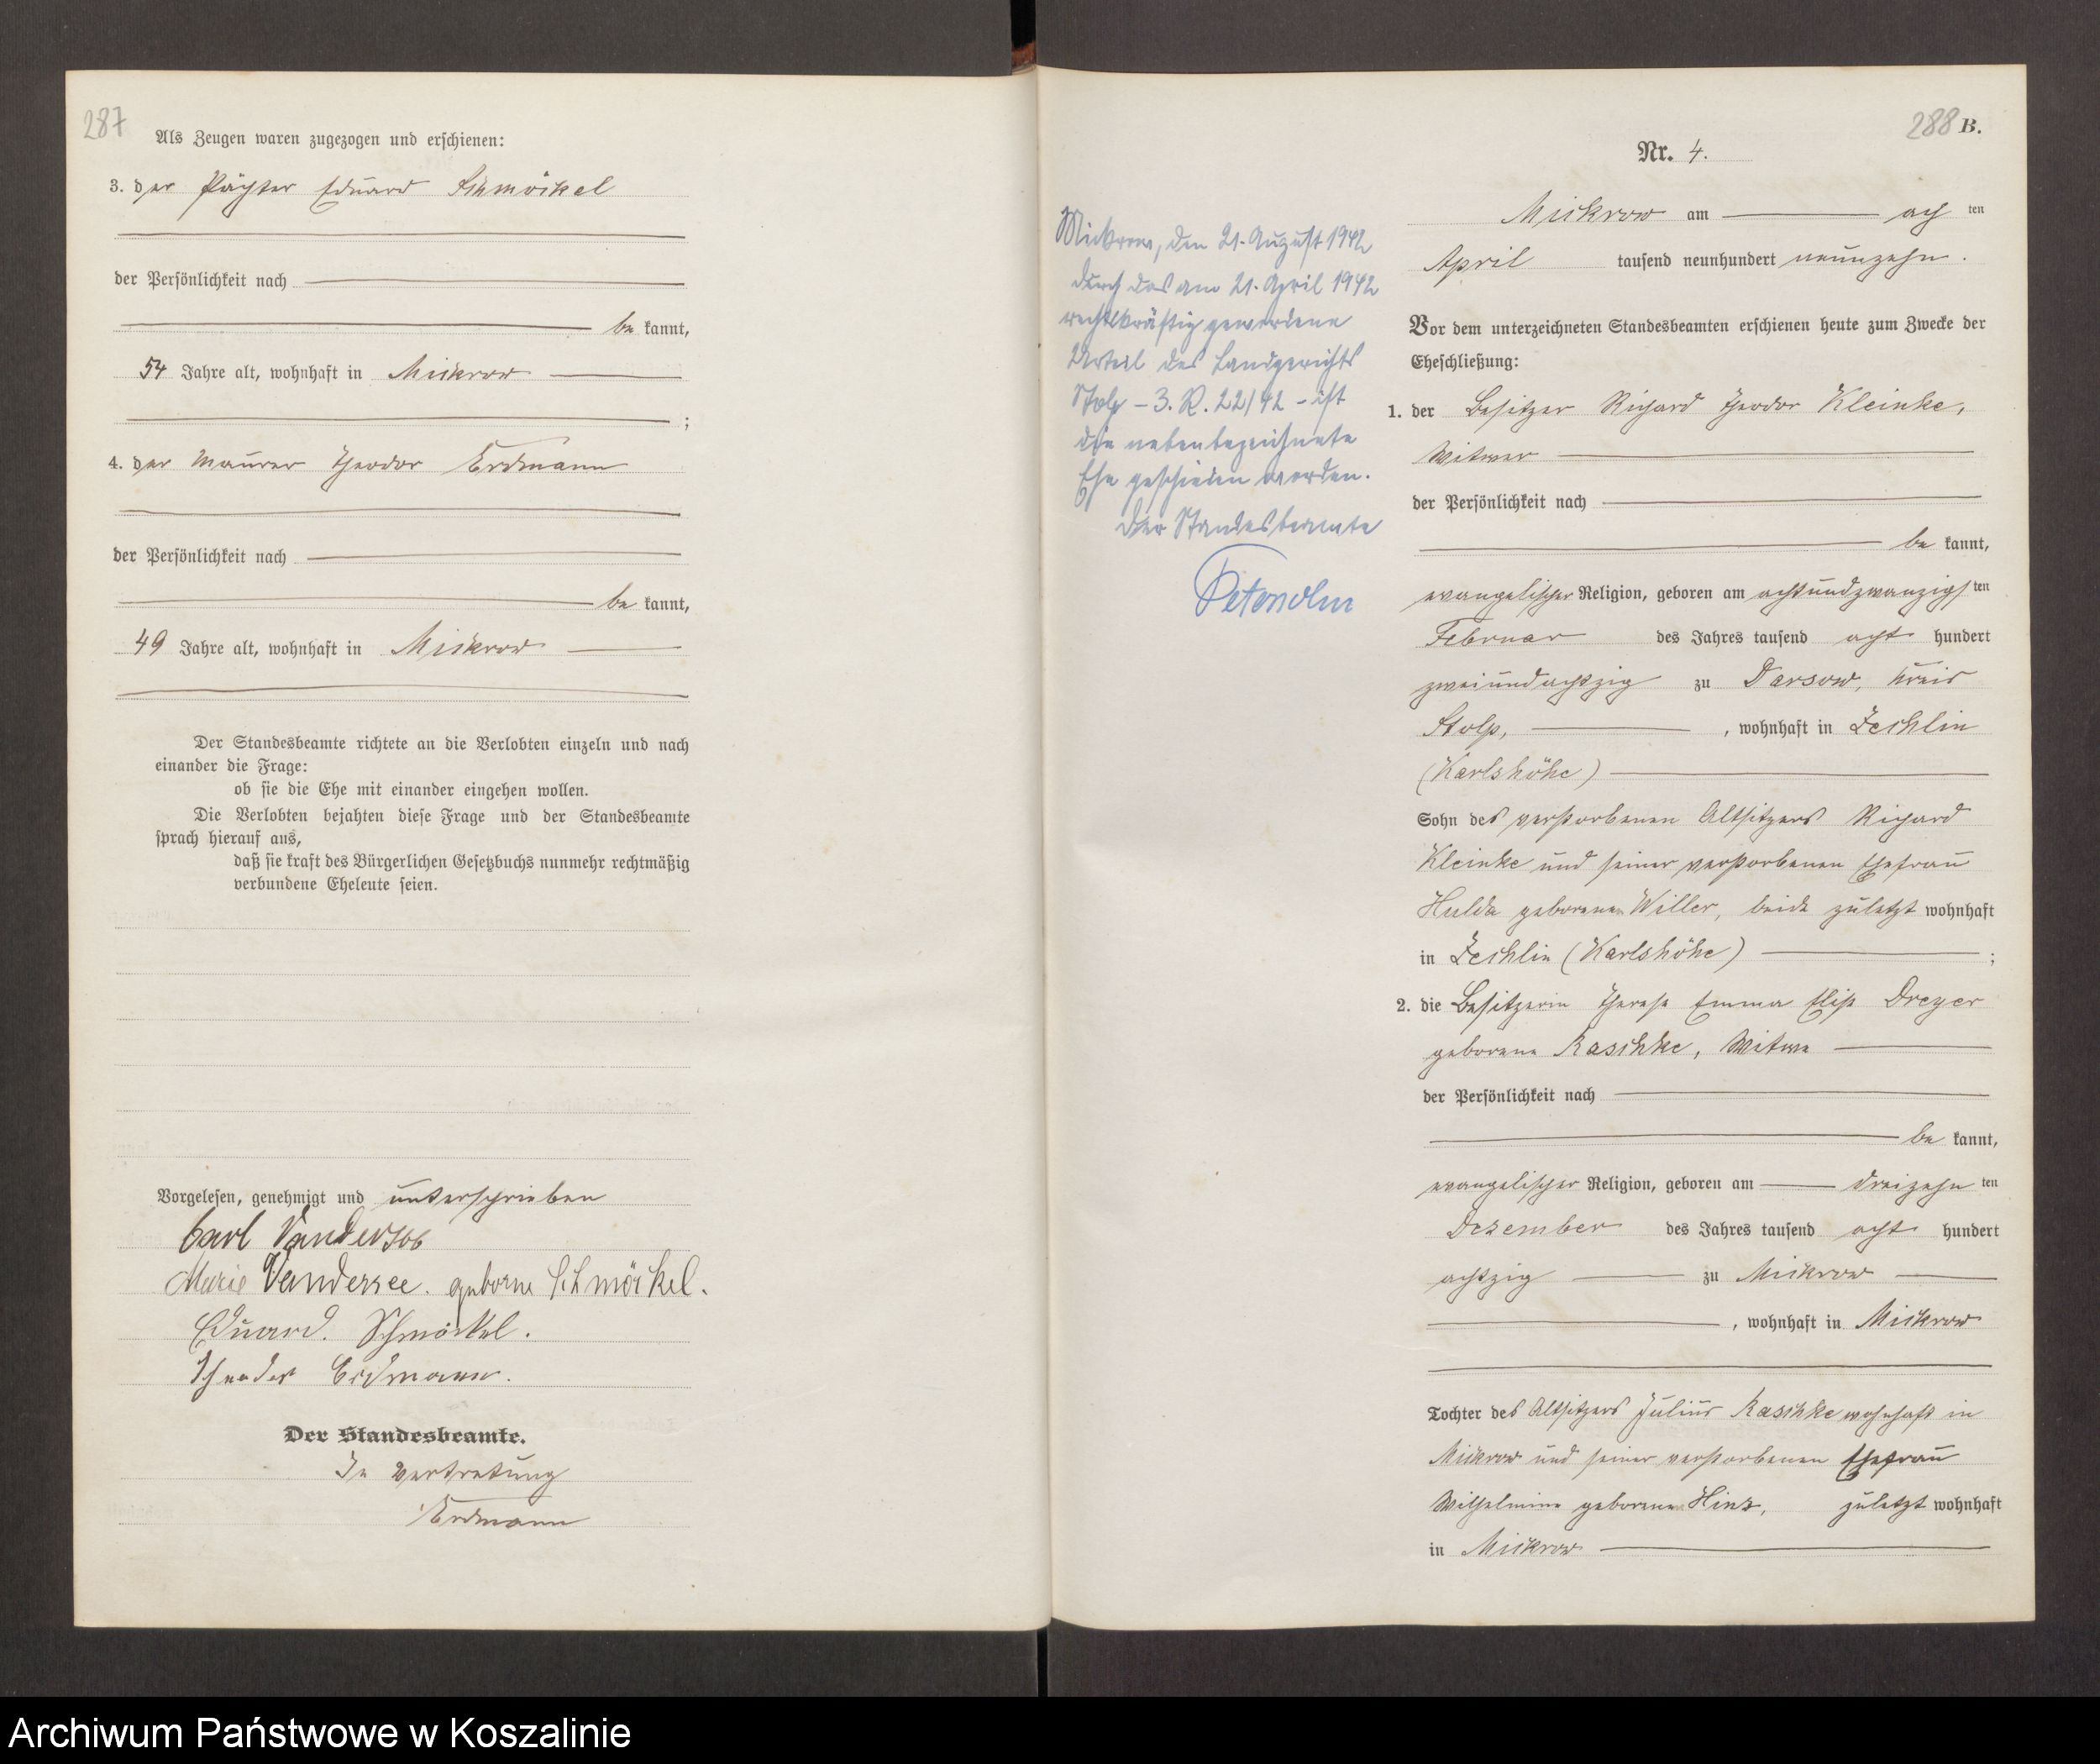 287
Als Zeugen waren zugezogen und erschienen:
3. der Pächter Eduard Schmöckel
der Persönlichkeit nach
be kannt,
54 Jahre alt, wohnhaft in Mickrow
;
4. der Maurer Theodor Erdmann
der Persönlichkeit nach
be kannt,
49 Jahre alt, wohnhaft in Mickrow
Der Standesbeamte richtete an die Verlobten einzeln und nach
einander die Frage:
ob sie die Ehe mit einander eingehen wollen.
Die Verlobten bejahten diese Frage und der Standesbeamte
sprach hierauf aus,
daß sie kraft des Bürgerlichen Gesetzbuchs nunmehr rechtmäßig
verbundene Eheleute seien.
Vorgelesen, genehmigt und unterschrieben
Carl
Marie Vandersee. geborne Schmöckel.
Eduard. Schmöckel.
Theodor Erdmann.
Der Standesbeamte.
In Vertretung
Erdmann
288 B.
Nr. 4.
Mickrow am ach ten
April tausend neunhundert neunzehn.
Vor dem unterzeichneten Standesbeamten erschienen heute zum Zwecke der
Eheschließung:
1. der Besitzer Richard Theodor Kleinke,
Witwer
der Persönlichkeit nach
be kannt,
evangelischer Religion, geboren am achtundzwanzigs ten
Februar des Jahres tausend acht hundert
zweiundachtzig zu Darsow, Kreis
Stolp, , wohnhaft in Zechlin
(Karlshöhe)
Sohn des verstorbenen Altsitzers Richard
Kleinke und seiner verstorbenen Ehefrau
Hulda geborenen Willer, beide zuletzt wohnhaft
in Zechlin (Karlshöhe) ;
2. die Besitzerin Therese Emma Elise Dreyer
geborene Raschke, Witwe
der Persönlichkeit nach
be kannt,
evangelischer Religion, geboren am dreizehn ten
Dezember des Jahres tausend acht hundert
achtzig zu Mickrow
, wohnhaft in Mickrow
Tochter des Altsitzers Julius Raschke wohnhaft in
Mickrow und seiner verstorbenen Ehefrau
Wilhelmine geborenen Hinz, zuletzt wohnhaft
in Mickrow
Mickrow, den 21. August 1942
Durch das am 21. April 1942
rechtskräftig gewordene
Urteil des Landgerichts
Stolp – 3. R. 22/42 – ist
die nebenbezeichnete
Ehe geschieden worden.
Der Standesbeamte
Archiwum Państwowe w Koszalinie